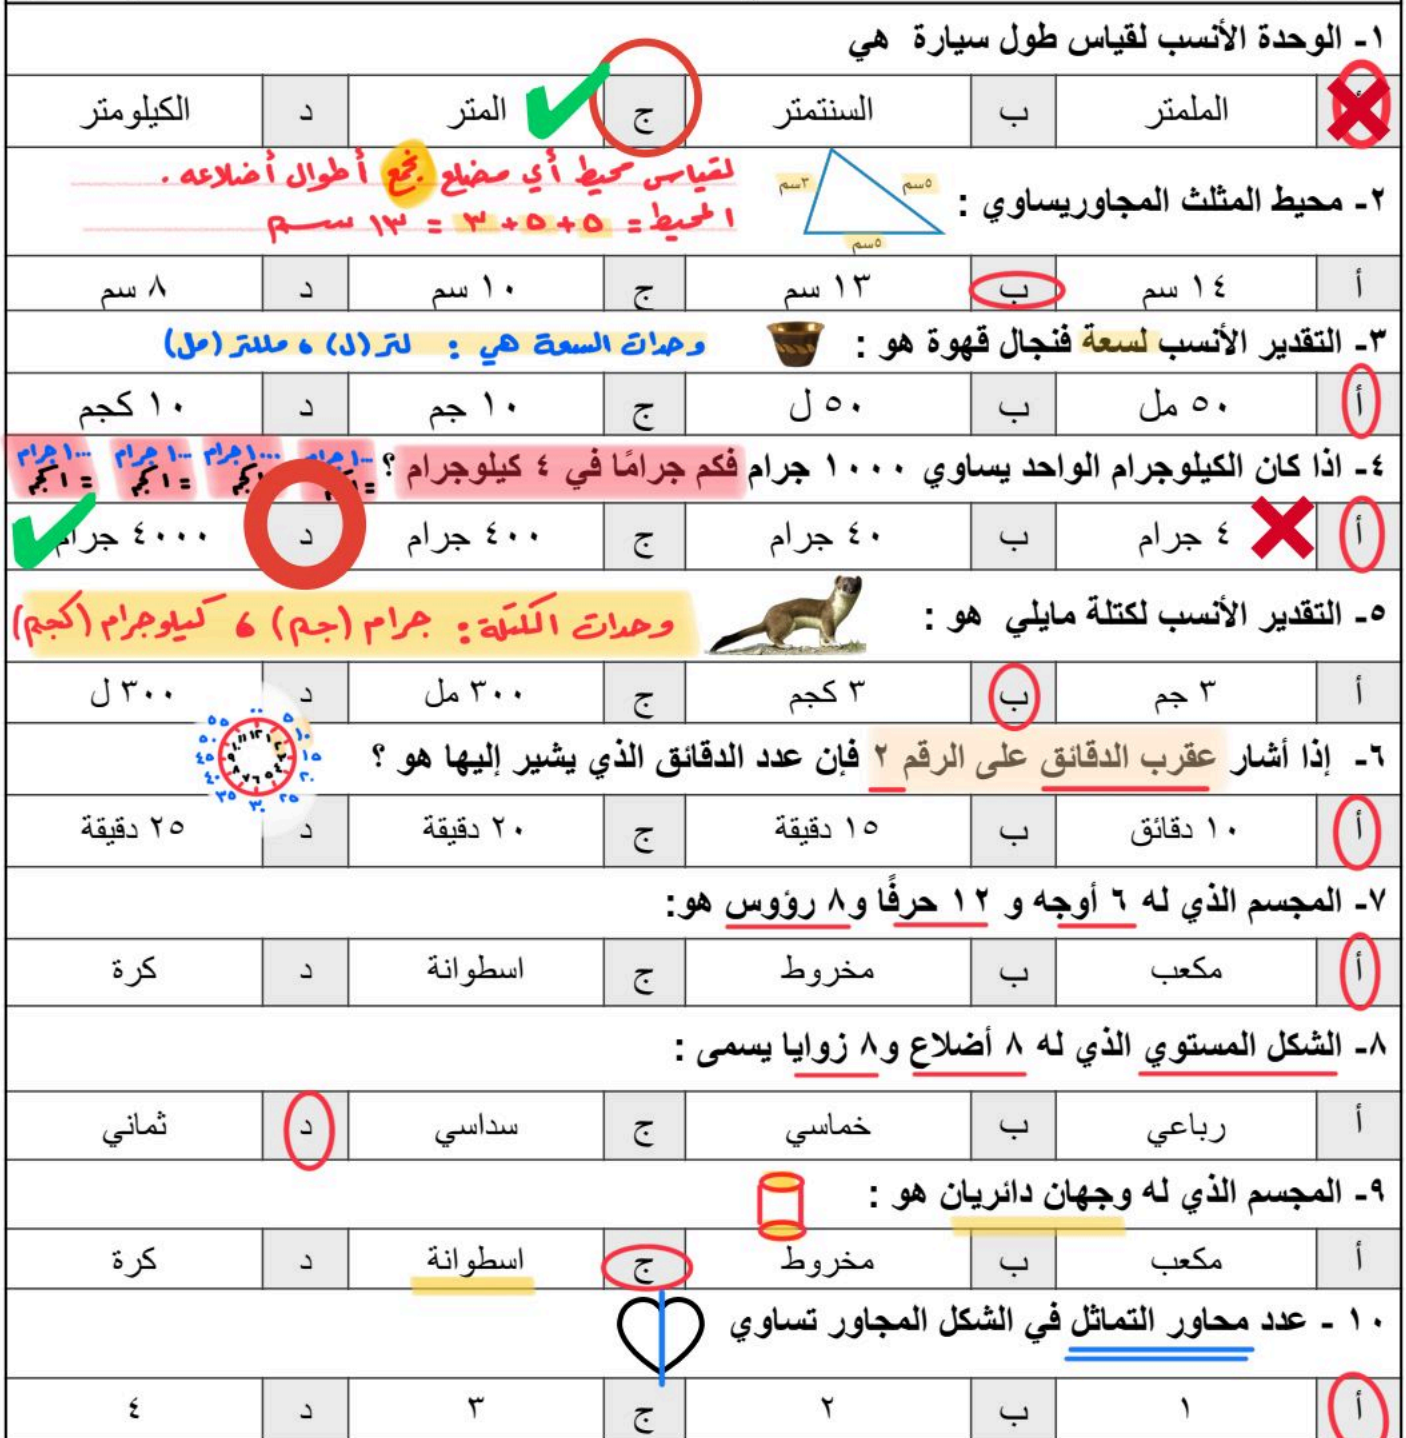 ١- الوحدة الأنسب لقياس طول سيارة هي
أ الملمتر ب السنتمتر ج المتر د الكيلومتر
لقياس محيط أي مضلع نجمع أطوال أضلاعه .
٢- محيط المثلث المجاوريساوي :
٥سم ٣سم
٥سم
المحيط = ٥ + ٥ + ٣ = ١٣ سم
أ ١٤ سم ب ١٣ سم ج ١٠ سم د ٨ سم
٣- التقدير الأنسب لسعة فنجال قهوة هو :
وحدات السعة هي : لتر (ل) ، مللتر (مل)
أ ٥٠ مل ب ٥٠ ل ج ١٠ جم د ١٠ كجم
٤- اذا كان الكيلوجرام الواحد يساوي ١٠٠٠ جرام فكم جرامًا في ٤ كيلوجرام ؟
١٠٠٠ جرام ١٠٠٠ جرام ١٠٠٠ جرام ١٠٠٠ جرام
= ١ كجم = ١ كجم = ١ كجم
أ ٤ جرام ب ٤٠ جرام ج ٤٠٠ جرام د ٤٠٠٠ جرام
٥- التقدير الأنسب لكتلة مايلي هو :
وحدات الكتلة : جرام (جم) ، كيلوجرام (كجم)
أ ٣ جم ب ٣ كجم ج ٣٠٠ مل د ٣٠٠ ل
٦- إذا أشار عقرب الدقائق على الرقم ٢ فإن عدد الدقائق الذي يشير إليها هو ؟
٠٠ ٥ ١٠ ١٥ ٢٠ ٢٥ ٣٠ ٣٥ ٤٠ ٤٥ ٥٠ ٥٥
أ ١٠ دقائق ب ١٥ دقيقة ج ٢٠ دقيقة د ٢٥ دقيقة
٧- المجسم الذي له ٦ أوجه و ١٢ حرفًا و٨ رؤوس هو:
أ مكعب ب مخروط ج اسطوانة د كرة
٨- الشكل المستوي الذي له ٨ أضلاع و٨ زوايا يسمى :
أ رباعي ب خماسي ج سداسي د ثماني
٩- المجسم الذي له وجهان دائريان هو :
أ مكعب ب مخروط ج اسطوانة د كرة
١٠ - عدد محاور التماثل في الشكل المجاور تساوي
أ ١ ب ٢ ج ٣ د ٤